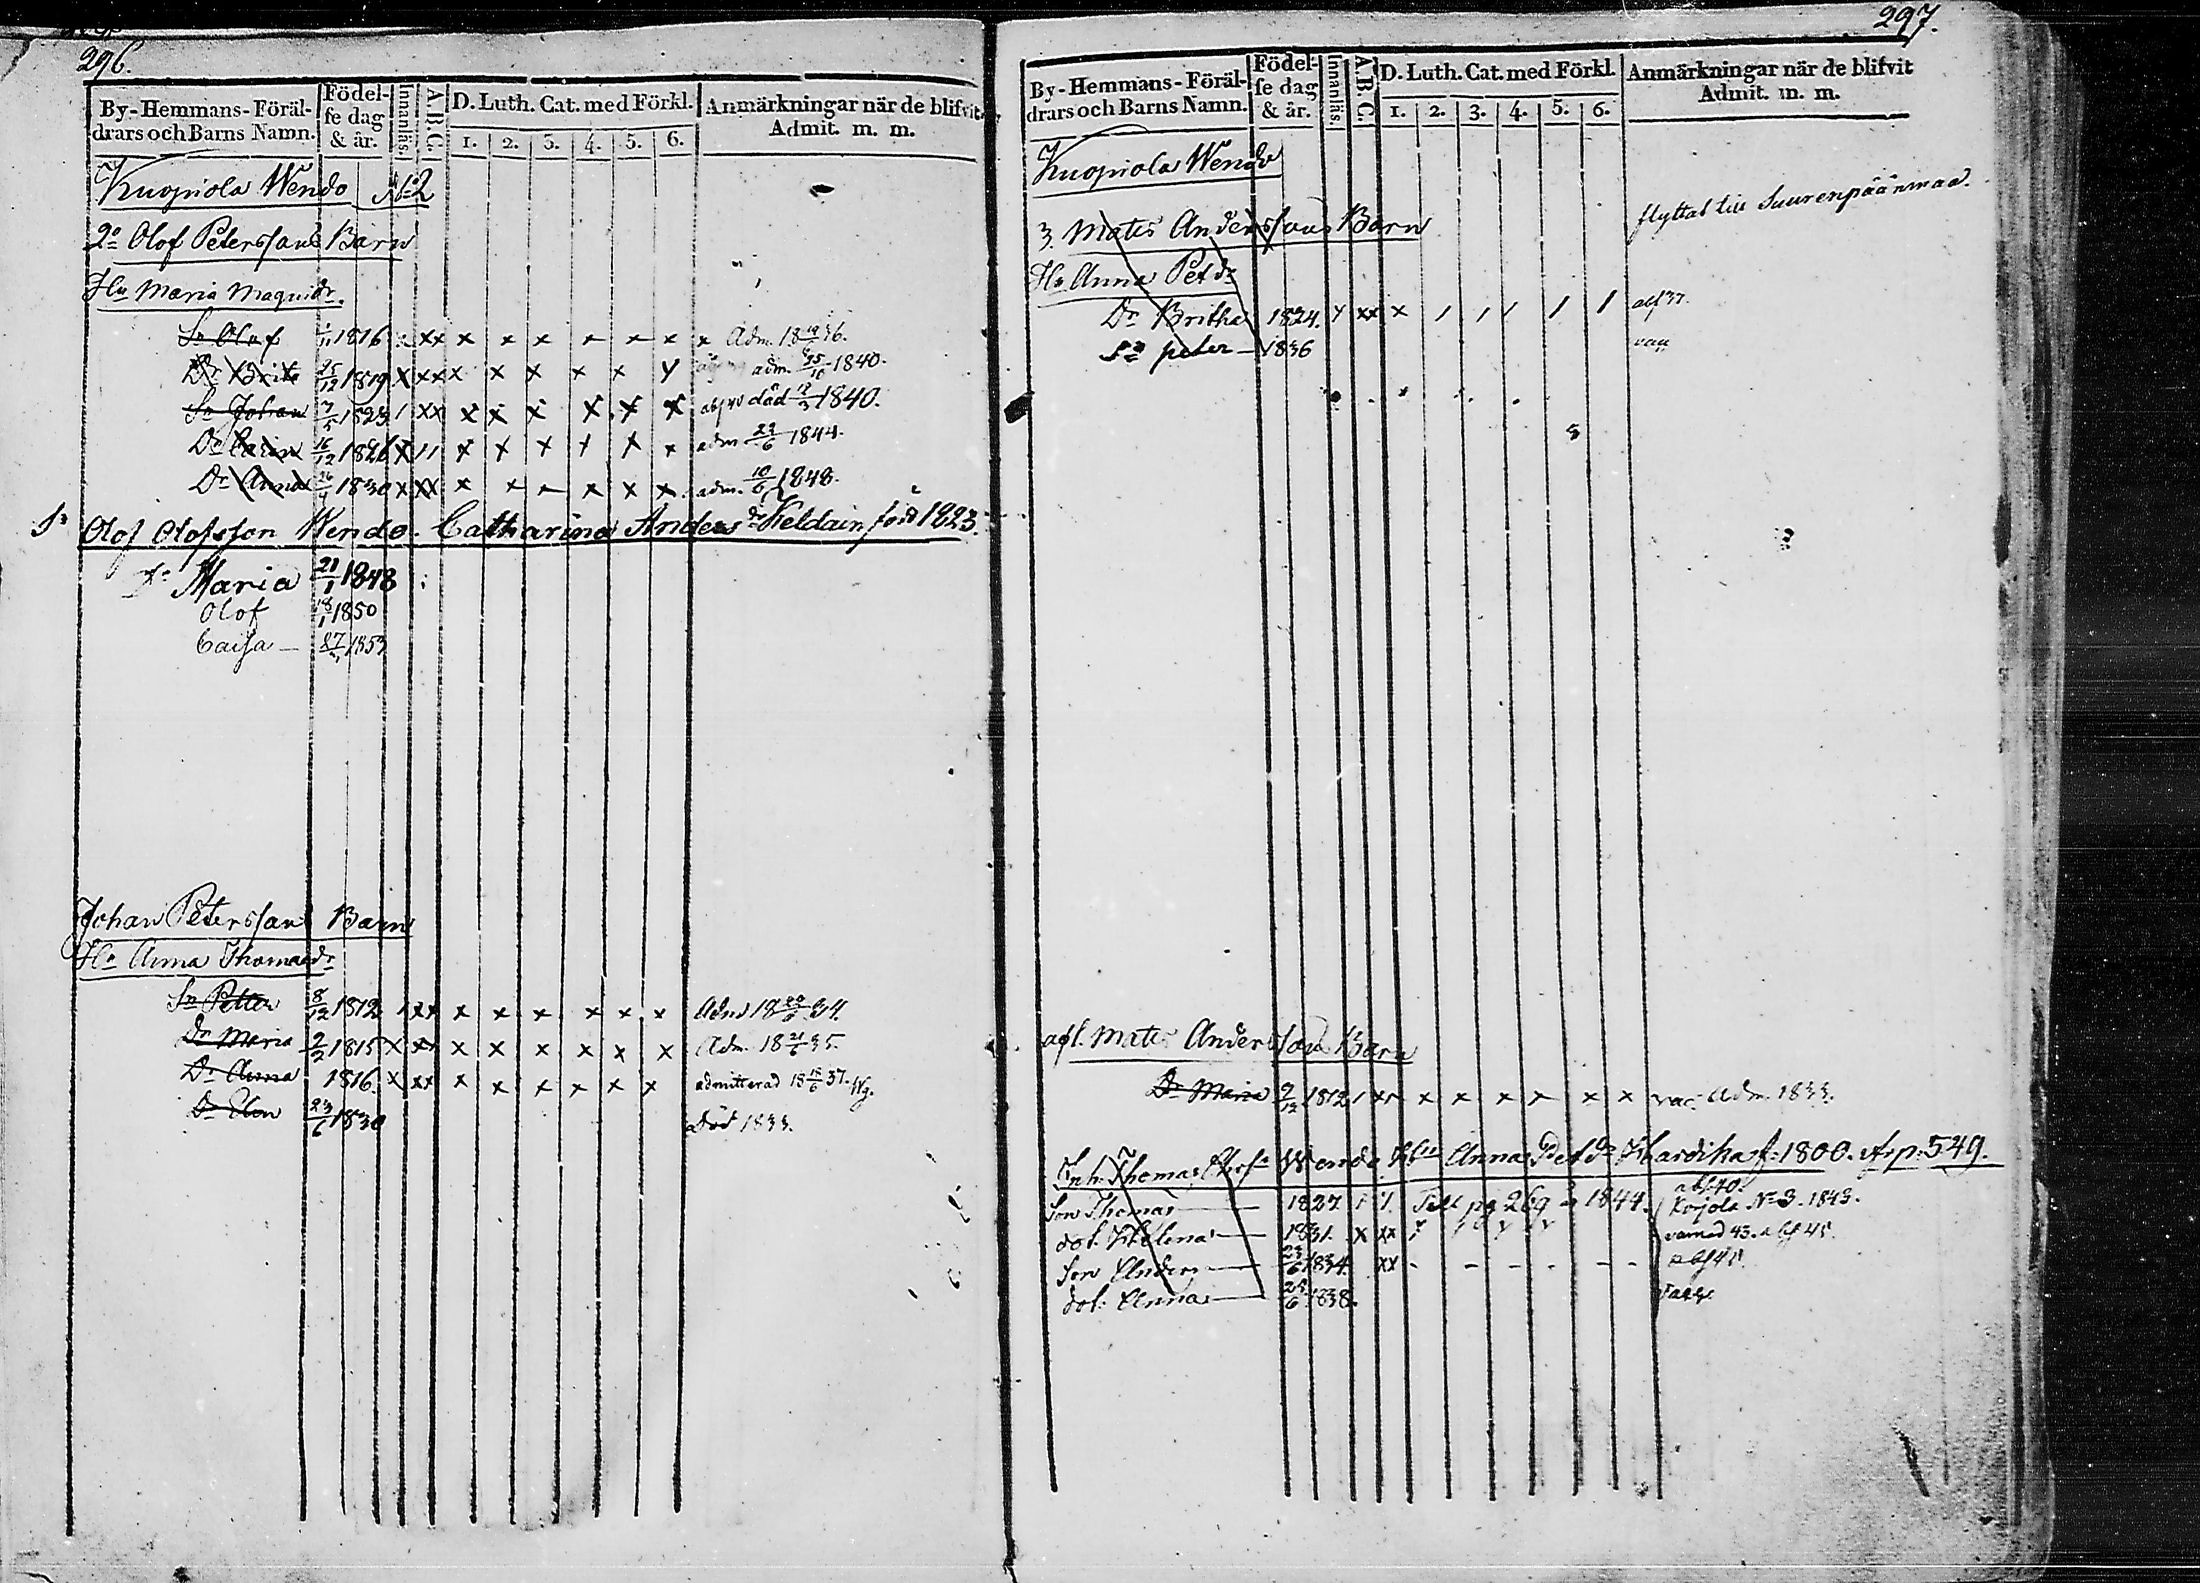 296.
By-Hemmans-Föräl-
drars och Barns Namn.
Födel-
se dag
& år.
Innanläs.
A.B.C.
D. Luth. Cat. med Förkl.
1. 2. 3. 4. 5. 6.
Anmärkningar när de blifvit
Admit. m. m.
Kuopiola Wendo No 2
2o Olof Peterssons Barn
Hu Maria Magnidr.
Sn Olof 1/11 1816 x xx x x x x x x x Adm. 18 19/6 36.
Dr Brita 25/12 1819 x xxx x x x x y adm. 25/10 1840.
Sn Johan 7/5 1823 / xx x x x x x x abs 40 död 12/3 1840.
Dr Carin 16/12 1826 x // x x x x x x adm 23/6 1844.
Dr Anna 1830 x xx x x x x x x adm. 10/6 1848.
Sn Olof Olofsson Wendo. Catharina Anders dr Keldain född 1823.
Dr Maria 21/1 1848
Olof 18/1 1850
Caisa — 27/ 1853
Johan Peterssons Barn
Hu Anna Thomædr
Sn Petter 8/12 1812 / xx x x x x x x Adm 18 34.
Dr Maria 2/2 1815 x xx x x x x x x Adm. 18 21/6 35.
Dr Anna 1816. x xx x x x x x x admitterad 18 18/6 37. Wg.
Dr Elin 23/6 1830 död 1833.
297.
By-Hemmans-Föräl-
drars och Barns Namn.
Födel-
se dag
& år.
Innanläs.
A.B.C.
D. Luth. Cat. med Förkl.
1. 2. 3. 4. 5. 6.
Anmärkningar när de blifvit
Admit. m. m.
Kuopiola Wendo
3. Mats Anderssons Barn flyttat till Suurenpäänmaa.
Hu Anna Petdr
Dr Britha 1824. y xx x / / / / / abs 37.
Sn peter — 1836 vac
afl. Mats Anderssons Barn
Dr Maria 9/12 1812 / xx x x x x x x vac. Adm. 1833.
Inh. Thomas Wendo Hu Anna Petdr f. 1800. p. 549.
Son Thomas — 1827 Till pg 269 1844. abs. 40. Korjola No 3. 1843.
dot. Helena — 1831. x xx vacand 43. abs 45.
Son Anders — 23/6 1834. xx - - - - - - abs 45.
dot. Anna — 25/6 1838. vacc.